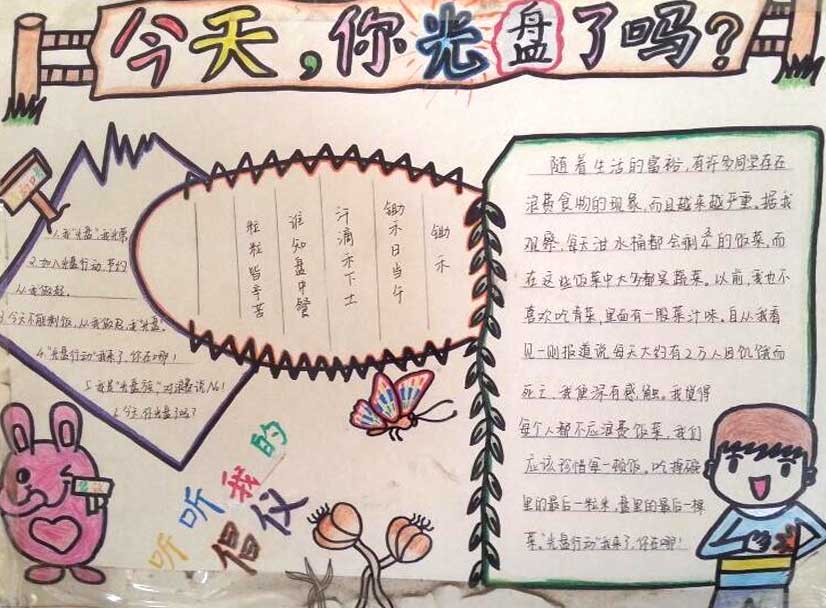 今天,你光盘了吗?
1.我"光盘"我光荣
2.加入光盘行动,节约
从我做起.
3.今天不能剩饭,从我做起,我"光盘".
4."光盘行动"来了,你在哪!
5.我是"光盘族",对浪费说No!
6.今天你光盘了吗?
锄禾
锄禾日当午
汗滴禾下土
谁知盘中餐
粒粒皆辛苦
听听我的
倡仪
随着生活的富裕,有许多同学存在
浪费食物的现象,而且越来越严重。据我
观察,每天泔水桶都会剩的饭菜,而
在这些饭菜中大多都是蔬菜。以前,我也不
喜欢吃青菜,里面有一股菜汁味。自从我看
见一则报道说,每天大约有2万人因饥饿而
死亡,我便深有感触。我觉得
每个人都不应浪费饭菜,我们
应该珍惜每一顿饭。吃掉碗
里的最后一粒米,盘里的最后一棵
菜。"光盘行动"我来了,你在哪!